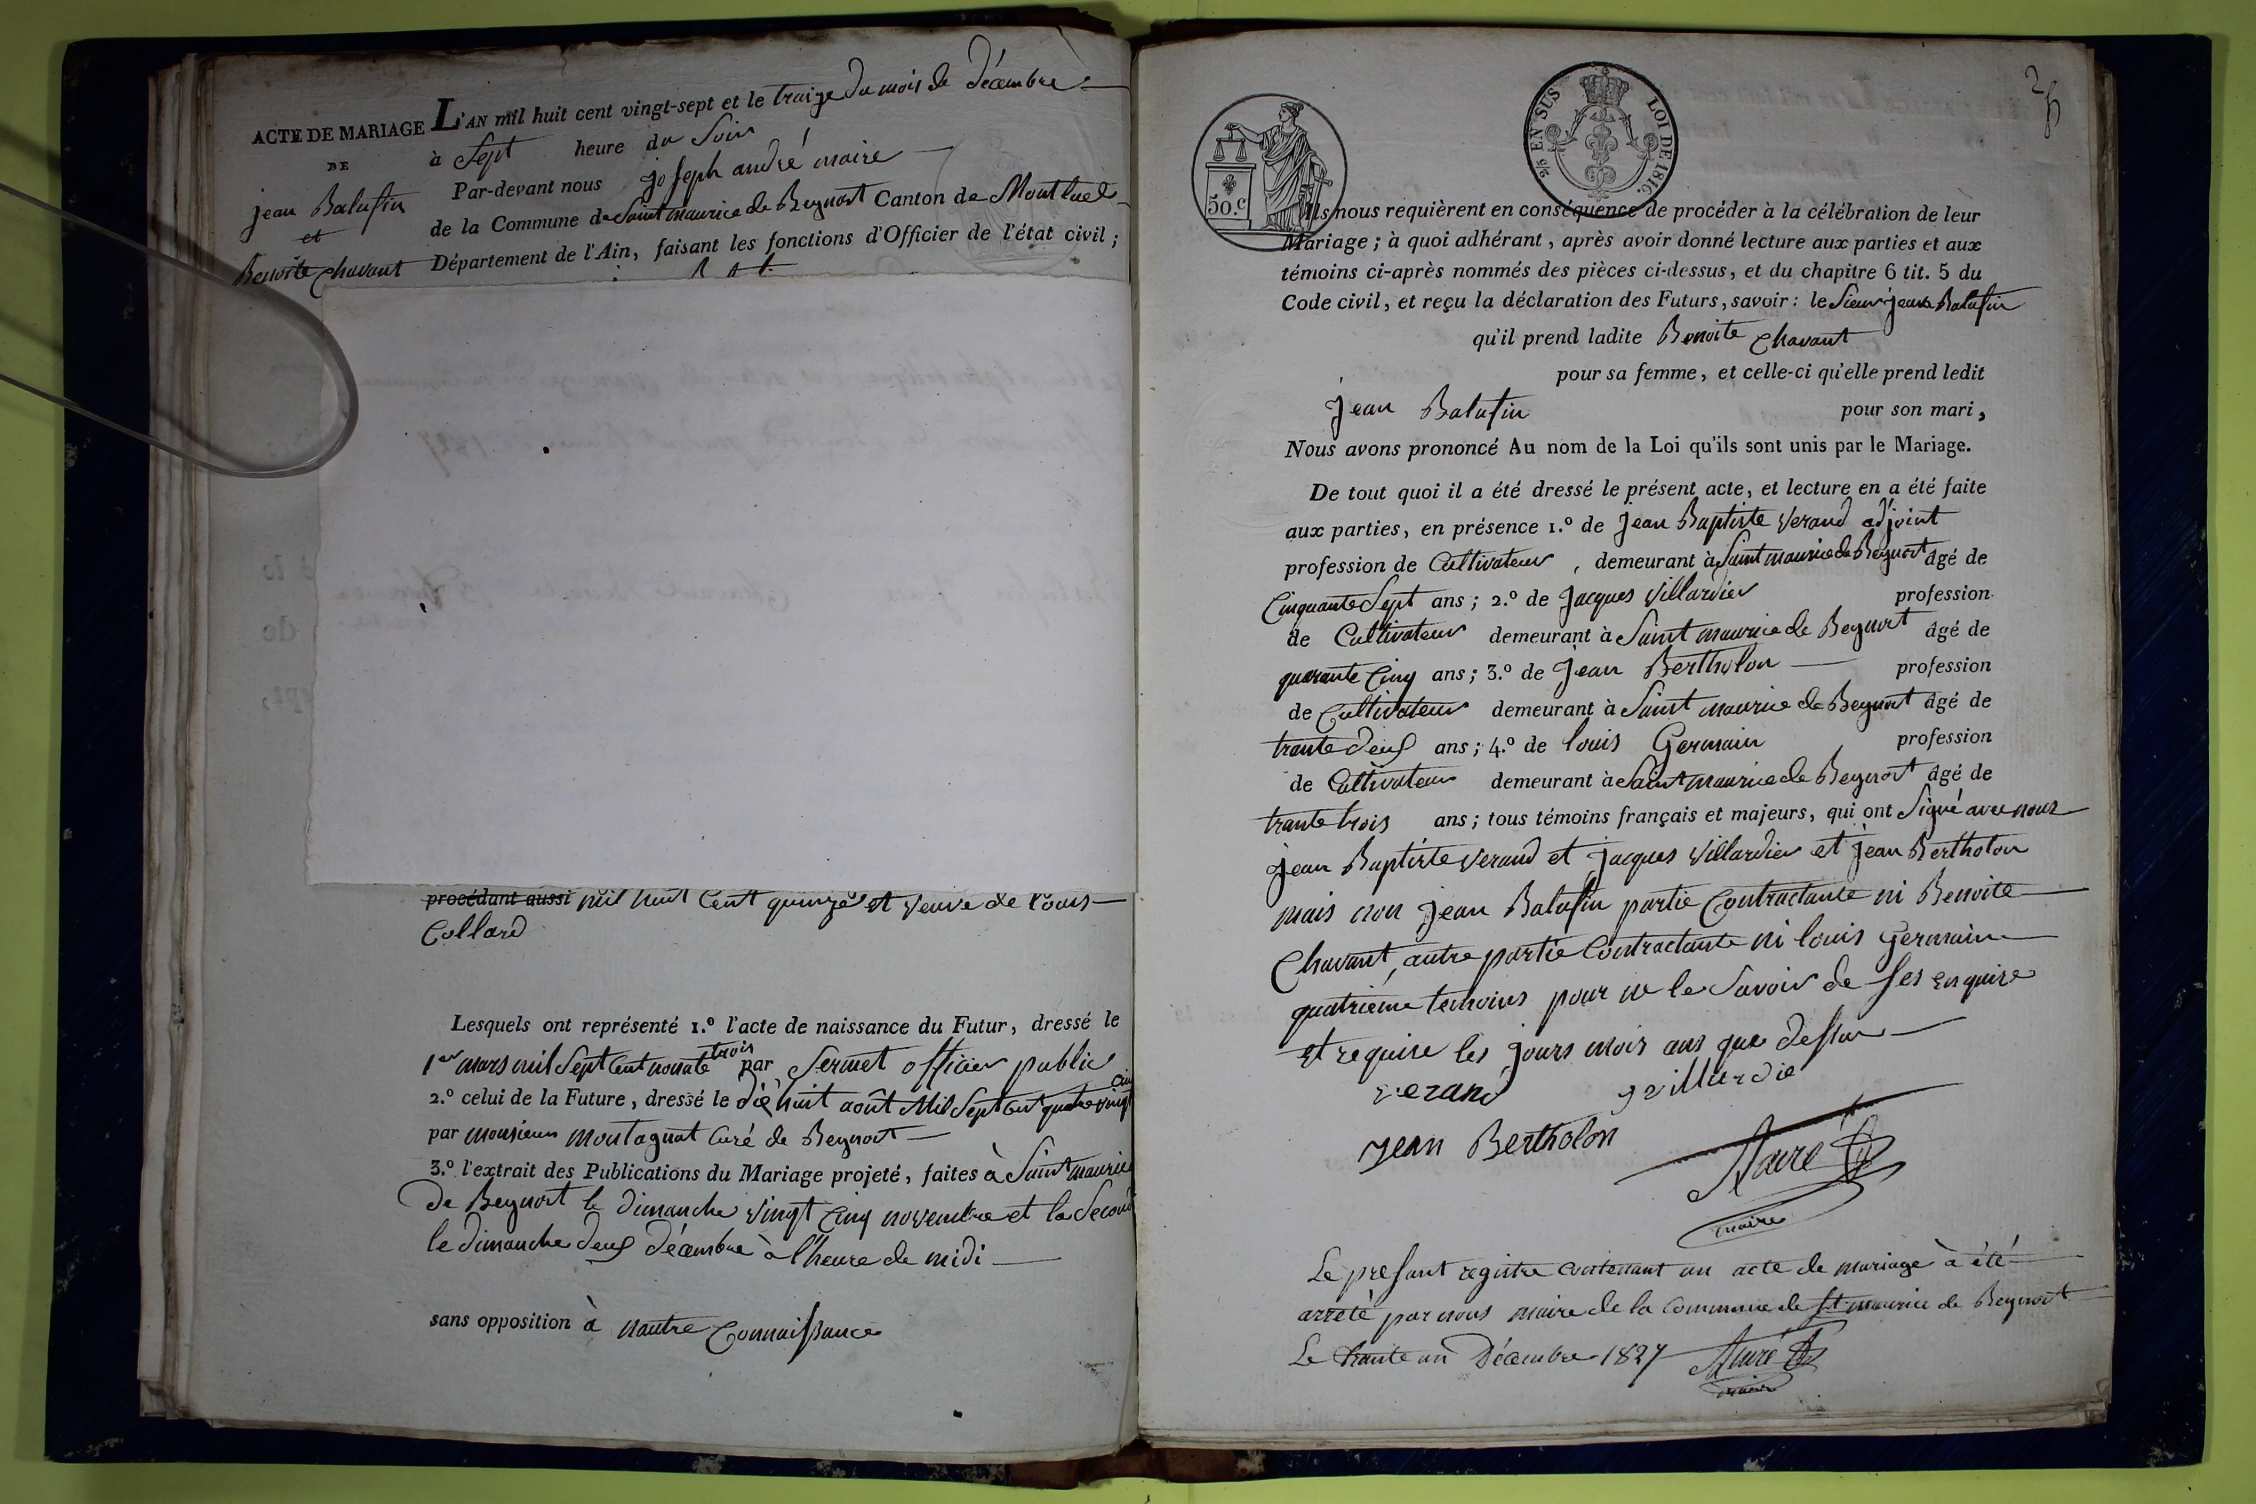 ACTE DE MARIAGE
DE
jean Balufin
et
Benoite Chavant
L'AN mil huit cent vingt-sept et le traize du mois de décembre
à Sept heure du Soir
Par-devant nous joseph andré maire
de la Commune de Saint maurice de Beynost Canton de Montluel
Département de l'Ain, faisant les fonctions d'Officier de l'état civil ;
procédant aussi mil huit Cent quinze et veuve de louis
Collard
Lesquels ont représenté 1.º l'acte de naissance du Futur, dressé le
1er mars mil Sept Cent nonate trois par Sermet officier public
2.º celui de la Future, dressé le dix huit août Mil Sept Cent quatre vingt cin
par monsieur montagnat Curé de Beynost
3.º l'extrait des Publications du Mariage projeté, faites à Saint maurice
de Beynost le dimanche vingt Cinq novembre et la Second
le dimanche deux décembre à l'heure de midi
sans opposition à nautre Connaissance
2/5 EN SUS LOI DE 1816.
50.c
Ils nous requièrent en conséquence de procéder à la célébration de leur
Mariage ; à quoi adhérant, après avoir donné lecture aux parties et aux
témoins ci-après nommés des pièces ci-dessus, et du chapitre 6 tit. 5 du
Code civil, et reçu la déclaration des Futurs, savoir : le Sieur jean Balufin
qu'il prend ladite Benoite Chavant
pour sa femme, et celle-ci qu'elle prend ledit
jean Balufin pour son mari,
Nous avons prononcé Au nom de la Loi qu'ils sont unis par le Mariage.
De tout quoi il a été dressé le présent acte, et lecture en a été faite
aux parties, en présence 1.º de jean Baptiste Verand adjoint
profession de Cultivateur, demeurant à Saint maurice de Beynost âgé de
Cinquante Sept ans ; 2.º de jacques Villardier profession
de Cultivateur demeurant à Saint maurice de Beynost âgé de
quarante Cinq ans ; 3.º de jean Bertholon profession
de Cultivateur demeurant à Saint maurice de Beynost âgé de
trante deux ans ; 4.º de louis Germain profession
de Cultivateur demeurant à Saint maurice de Beynost âgé de
trante trois ans ; tous témoins français et majeurs, qui ont Signé avec nous
jean Baptiste Verand et jacques Villardier et jean Bertholon
mais non jean Balufin partie Contractante ni Benoite
Chavant, autre partie Contractante ni louis Germain
quatrième temoins pour ne le Savoir de Ses enquire
et require les jours mois ans que dessus
verand J villardie
jean Bertholon
André
maire
Le present registre contenant un acte de mariage à été
arreté par nous maire de la Commune de St maurice de Beynost
Le trante un Décembre 1827 André
maire